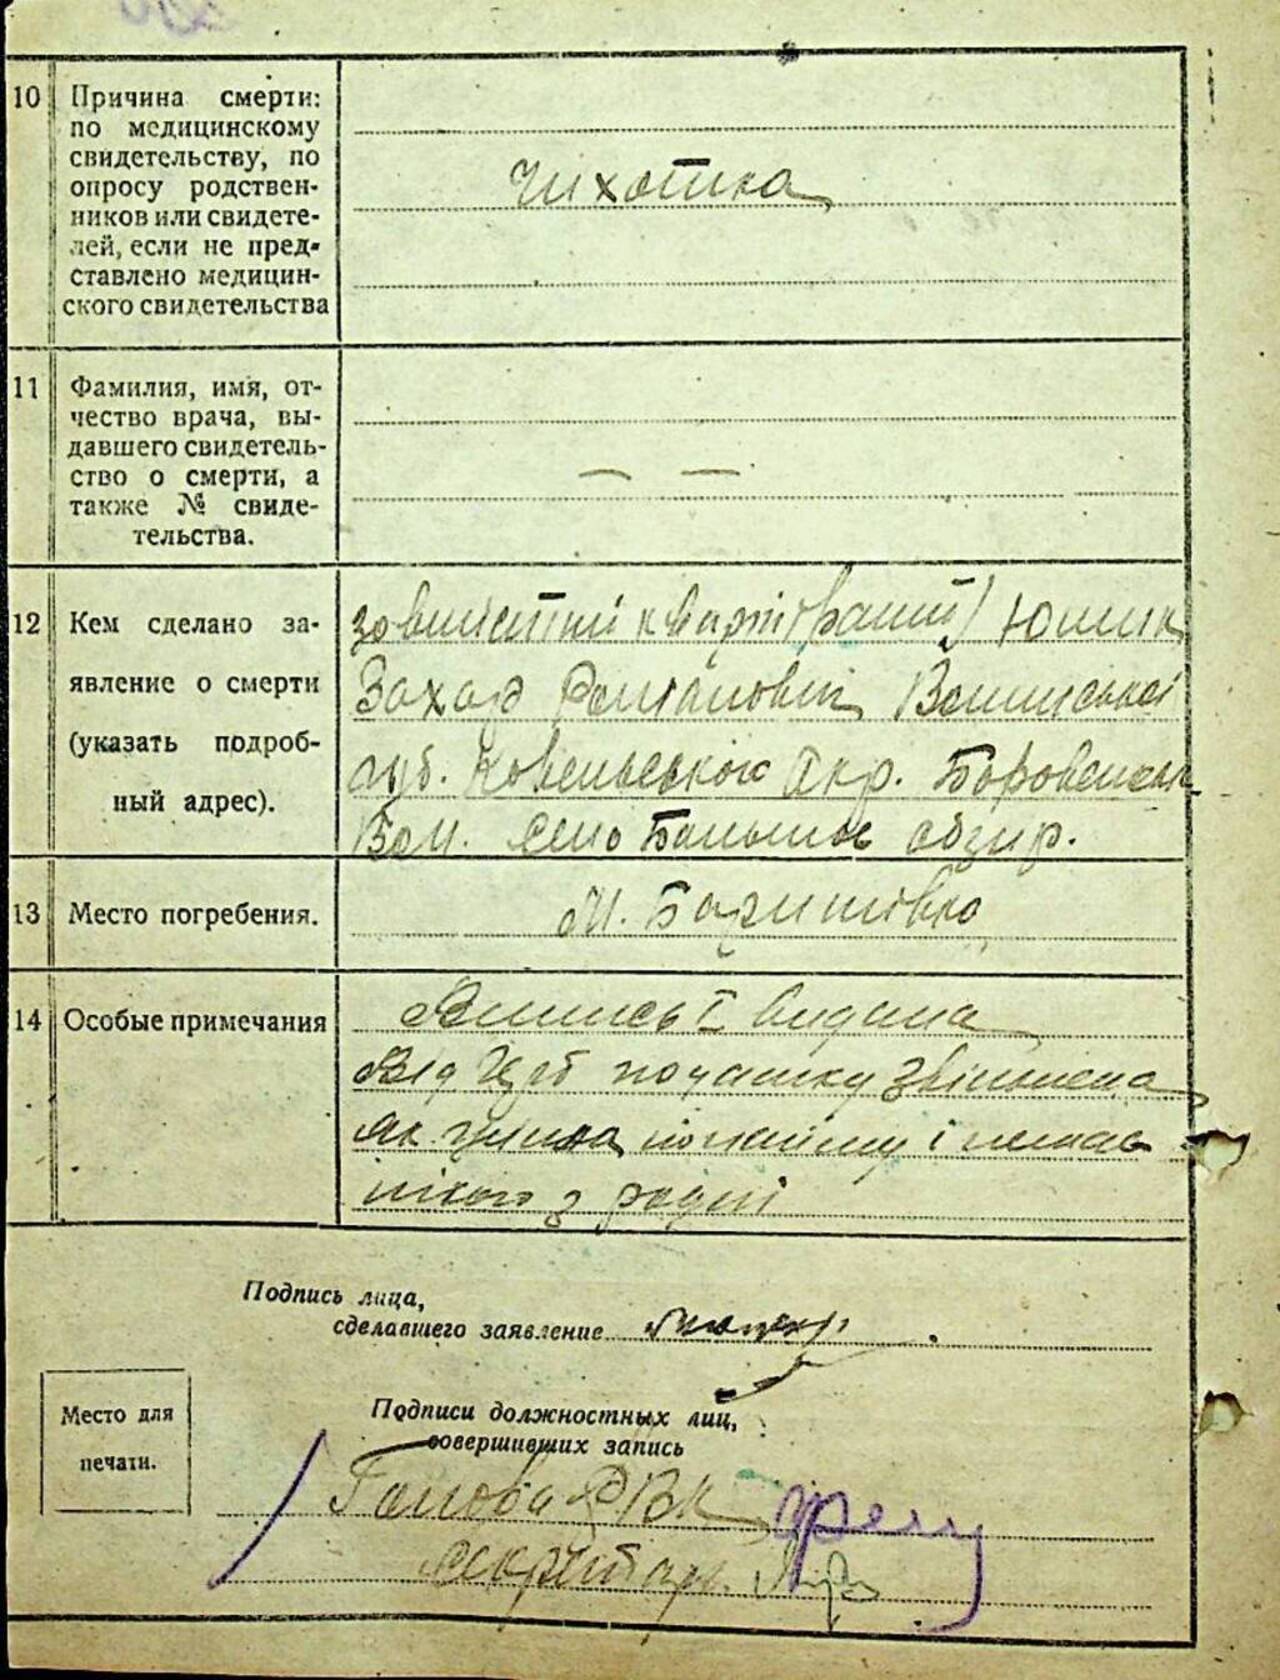 10 Причина смерти:
по медицинскому
свидетельству, по
опросу родствен-
ников или свидете-
лей, если не пред-
ставлено медицин-
ского свидетельства
Чихотка
11 Фамилия, имя, от-
чество врача, вы-
давшего свидетель-
ство о смерти, а
также № свиде-
тельства.
— —
12 Кем сделано за-
явление о смерти
(указать подроб-
ный адрес).
Захар Романовіч Волинської
губ. Ковельського Окр.
Вол. село Большое обзир.
13 Место погребения.
М. Баришівка
14 Особые примечания
Випись І видана
Від Герб податку звільнена
як
нікого з рідні
Подпись лица,
сделавшего заявление
Место для
печати.
Подписи должностных лиц,
совершивших запись
Голова РВК
Секретар